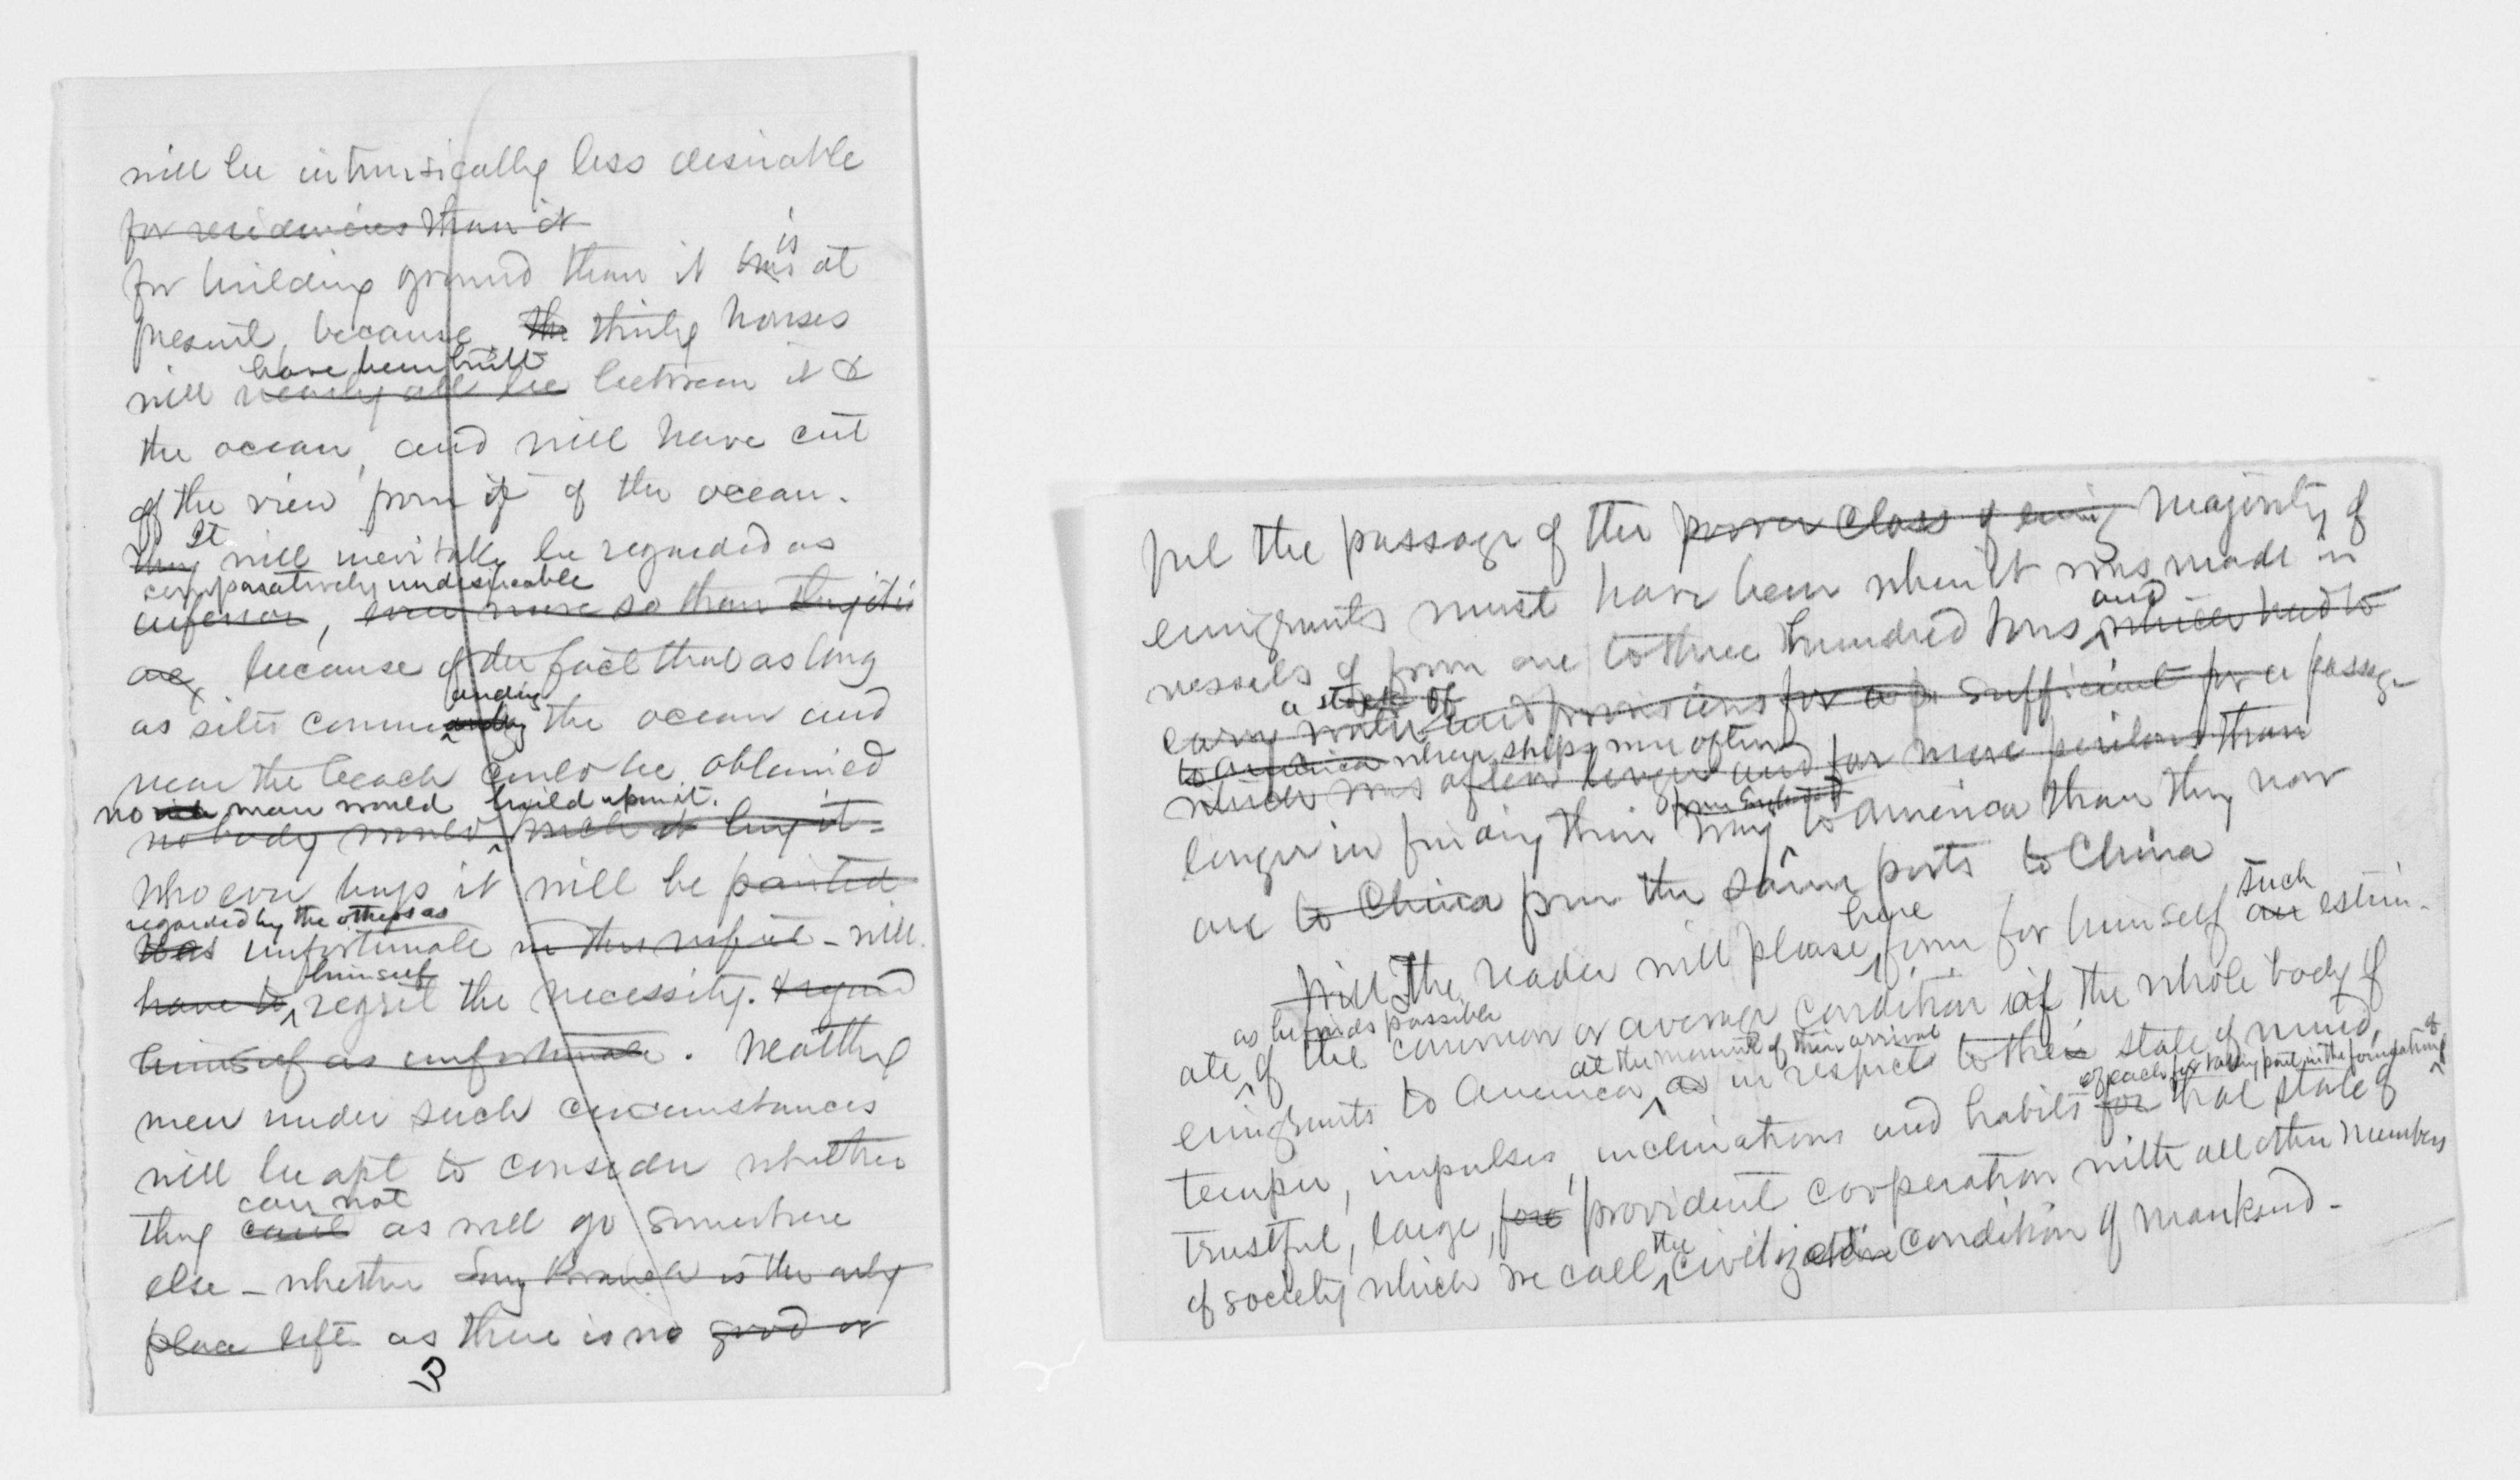 will be intrinsically less desirable
for residences than it
for building ground than it was is at
present, because the thirty houses
have been built
will nearly all be between it &
the ocean, and will have cut
off the view from it of the ocean.
They It will inevitably be regarded as
comparatively undesireable
inferior, even more so than they it is
are, because of the fact that as long
anding
as sites commanding the ocean and
near the beach could be obtained
no man would build upon it.
nobody would buy it -
Whoever buys it will be
regarded by the others as
was unfortunate in this respect - will
himself
have to regret the necessity. & regard
himself as unfortunate. Wealthy
men under such circumstances
will be apt to consider whether
can not
they can't as well go somewhere
else - whether Long Branch is the only
place left as there is no good or
the passage of the poorer class of emig majority of
emigrants must have been when it was made in
and
vessels of from one to three hundred tons, which had to
a stock of
carry water and provisions for a p sufficient for a passage
to America when ships were often
which was often longer and far more perilous than
from England
longer in finding their way to America than they now
are to China from the same ports to China
here such
Will The reader will please form for himself an estim-
as he finds possible
ate of the common or average condition of the whole body of
at the moment of their arrival
emigrants to America as in respect to their state of mind,
of each for taking part in the formation of
temper, impulses, inclinations and habits for that state of
trustful, large, fore provident cooperation with all other members
the
of society which we call civilization condition of mankind -